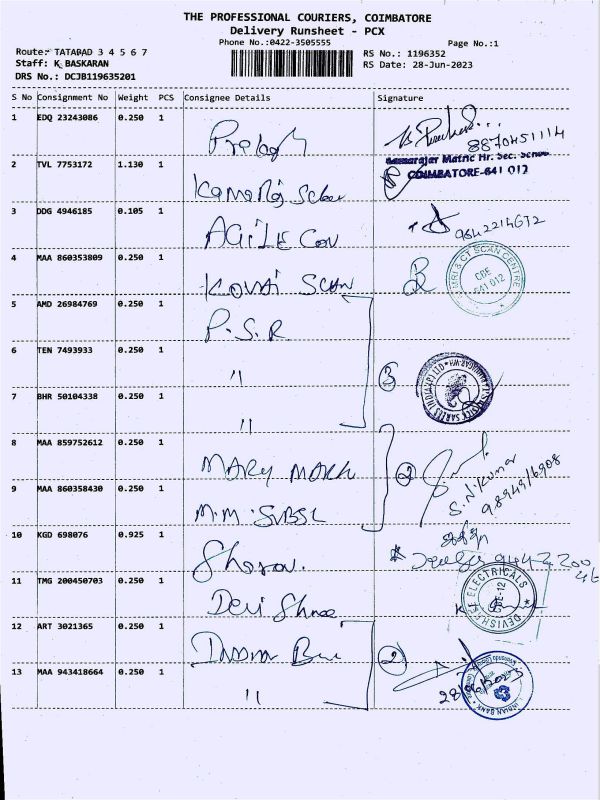 THE PROFESSIONAL COURIERS, COIMBATORE
Delivery Runsheet - PCX
Phone No.:0422-3505555
Page No.:1
Route: TATABAD 3 4 5 6 7
RS No.: 1196352
Staff: K BASKARAN
RS Date: 28-Jun-2023
DRS No.: DCJB119635201
S No Consignment No Weight PCS Consignee Details Signature
1 EDQ 23243086 0.250 1
8870451114
2 TVL 7753172 1.130 1
Matric Hr. Sec. School
COIMBATORE-641 012
3 DDG 4946185 0.105 1 AGILE Con
9842214672
4 MAA 860353809 0.250 1 KOVAI SCAN
MRI & CT SCAN CENTRE
CBE
641 012
5 AMD 26984769 0.250 1 P.S.R
6 TEN 7493933 0.250 1 "
3
7 BHR 50104338 0.250 1 "
8 MAA 859752612 0.250 1 MARY MARK
2
S.N.Kumar
9 MAA 860358430 0.250 1 M.M.
10 KGD 698076 0.925 1
11 TMG 200450703 0.250 1 Devi Shree
DEVISHREE ELECTRICALS
12 ART 3021365 0.250 1
2
13 MAA 943418664 0.250 1 "
28/06/2023
INDIAN BANK